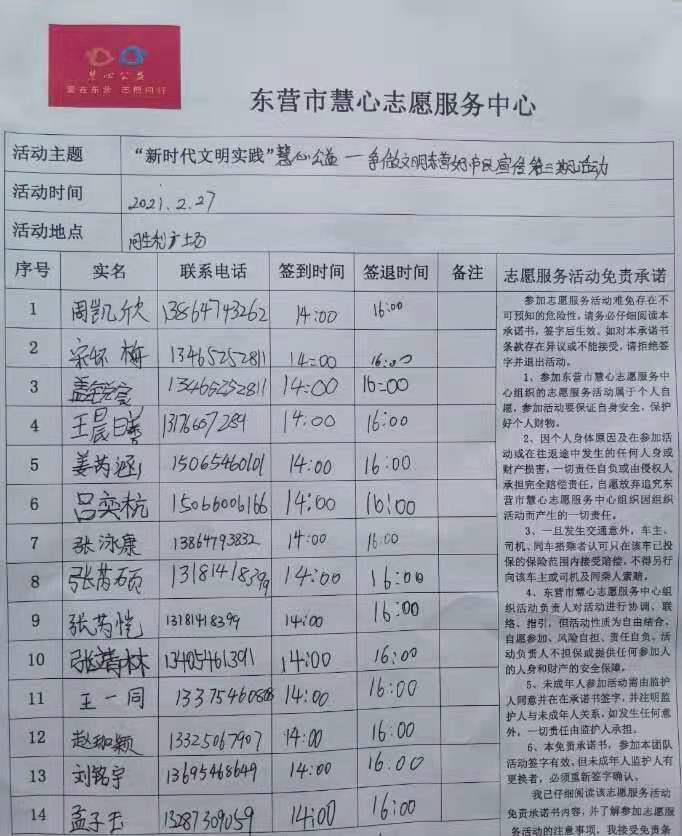 慧心公益
爱在东营 志愿同行
东营市慧心志愿服务中心
活动主题 “新时代文明实践”慧心公益—争做文明东营好市民宣传第三期活动
活动时间 2021.2.27
活动地点 胜利广场
序号 实名 联系电话 签到时间 签退时间 备注
1 周凯欣 13864743262 14:00 16:00
2 宋怀梅 13465252811 14:00 16:00
3 13465252811 14:00 16:00
4 王晨 1376607284 14:00 16:00
5 姜芮涵 15065460101 14:00 16:00
6 吕奕杭 15066006166 14:00 16:00
7 张泳康 13864793832 14:00 16:00
8 张芮硕 13181418399 14:00 16:00
9 张芮恺 13181418399 14:00 16:00
10 张靖林 13405461391 14:00 16:00
11 王一同 13375460808 14:00 16:00
12 赵珈颖 13325067907 14:00 16:00
13 刘铭宇 13695468649 14:00 16:00
14 孟子玉 13287309059 14:00 16:00
志愿服务活动免责承诺
参加志愿服务活动难免存在不
可预知的危险性，请务必仔细阅读本
承诺书，签字后生效。如对本承诺书
条款存在异议或不能接受，请拒绝签
字并退出活动。
1、参加东营市慧心志愿服务中
心组织的志愿服务活动属于个人自
愿，参加活动要保证自身安全，保护
好个人财物。
2、因个人身体原因及在参加活
动或在往返途中发生的任何人身或
财产损害，一切责任自负或由侵权人
承担完全赔偿责任，自愿放弃追究东
营市慧心志愿服务中心组织因组织
活动而产生的一切责任。
3、一旦发生交通意外，车主、
司机、同车搭乘者认可只在该车已投
保的保险范围内接受赔偿，不得另行
向该车主或司机及同乘人索赔。
4、东营市慧心志愿服务中心组
织活动负责人对活动进行协调、联
络、指引，但活动性质为自由结合，
自愿参加、风险自担、责任自负，活
动负责人不担保或提供任何参加人
的人身和财产的安全保障。
5、未成年人参加活动需由监护
人同意并在在承诺书签字，并注明监
护人与未成年人关系，如发生任何意
外，一切责任由监护人承担。
6、本免责承诺书，参加本团队
活动签字有效，但未成年人监护人有
更换者，必须重新签字确认。
我已仔细阅读该志愿服务活动
免责承诺书内容，并了解参加志愿服
务活动的注意事项，我接受免责条